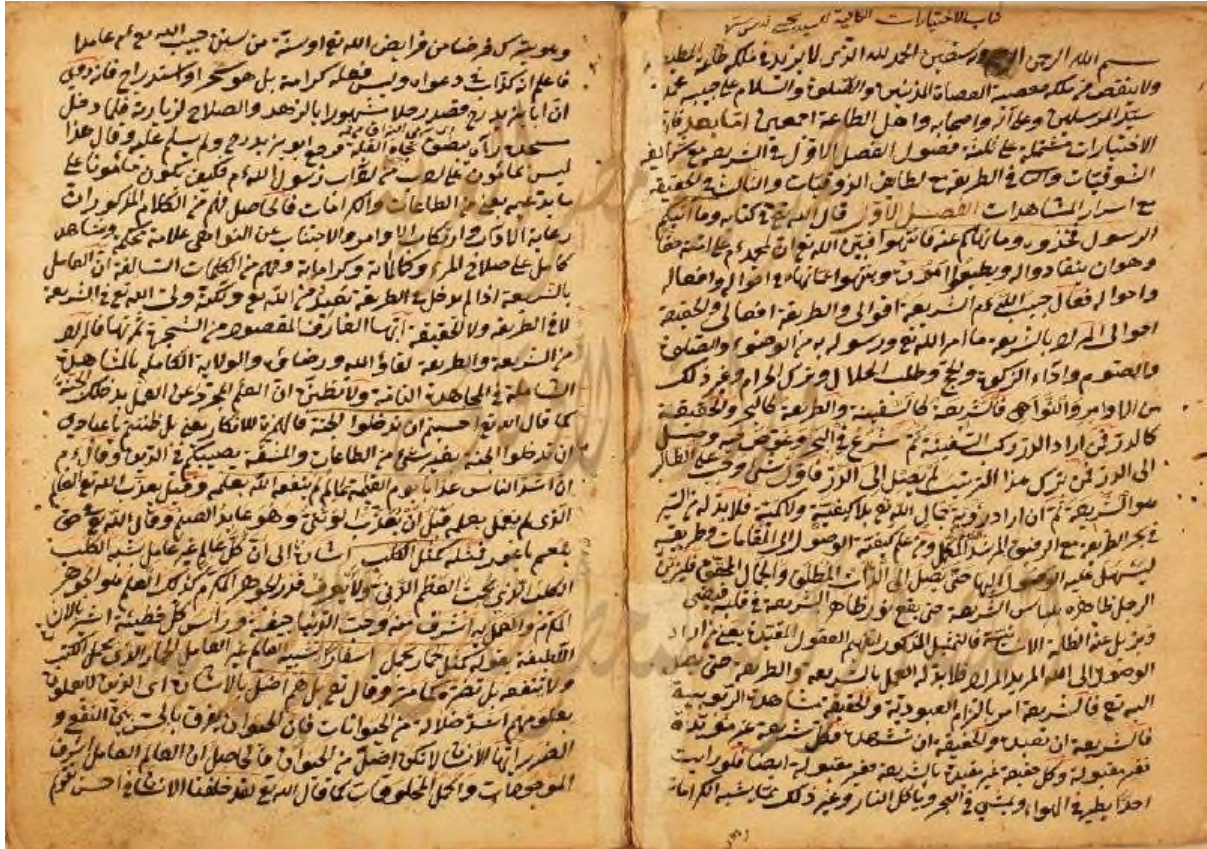 كتاب الاختيارات
بسم الله الرحمن الحمد لله الذي لا يزيد في ملكه طاعة
ولا ينقص من ملكه معصية العصاة المذنبين والصلوة والسلام على حبيبه محمد
سيد المرسلين وعلى آله واصحابه واهل الطاعة اجمعين اما بعد
الاختيارات مشتملة على ثلثة فصول الفصل الاول في الشريعة مع
في الطريقة مع لطايف الذوقيات والثالث في الحقيقة
مع اسرار المشاهدات الفصل الاول قال الله تع في كتابه وما آتيكم
الرسول فخذوه وما نهاكم عنه فانتهوا
وهو ان ينقادوا له ويطيعوا في اقواله وافعاله
واحواله فقال حبيب الله عم الشريعة اقوالي والطريقة افعالي والحقيقة
احوالي المراد بالشريعة ما امر الله تع ورسوله به من الوضوء والصلوة
والصوم واداء الزكوة والحج وطلب الحلال وترك الحرام وغير ذلك
من الاوامر والنواهي فالشريعة كالسفينة والطريقة كالبحر والحقيقة
كالدر فمن اراد الدر ركب السفينة ثم شرع في البحر ويغوص فيه ويصل
الى الدر فمن ترك هذا الترتيب لم يصل الى الدر فاول شيء وجب على الطالب
هو الشريعة ثم ان اراد رؤية جمال الله تع بلا كيفية ولا كمية فلا بد له من السير
في بحر الطريقة مع الرفيق المرشد المكمل ومن علم كيفية الوصول الى المقامات وطريقه
ليسهل عليه الوصول اليها حتى يصل الى الذات المطلق والجمال المحقق
الرجل ظاهره بلباس الشريعة حتى يقع نور ظاهر الشريعة في قلبه
ويزيل عنه الظلمة الانسانية فالتمثيل المذكور لفهم العقول المقيدة يعني من اراد
الوصول الى الله المريد المراد فلا بد له العمل بالشريعة والطريقة حتى يصل
اليه تع فالشريعة امر بالزام العبودية والحقيقة مشاهدة الربوبية
فالشريعة ان تعبده والحقيقة ان تشهده فكل شريعة غير مؤيدة
فغير مقبولة وكل حقيقة غير مقيدة بالشريعة فغير مقبولة ايضا فلو رايت
احدا يطير في الهواء ويمشي في البحر وياكل النار وغير ذلك مما يشبه الكرامة
وهو يترك فرضا من فرايض الله تع او سنة من سنن حبيب الله تع عم عامدا
فاعلم انه كذاب في دعواه وليس فعله كرامة بل هو سحر او استدراج فانه روي
ان ابا يزيد رح قصد رجلا مشهورا بالزهد والصلاح لزيارته فلما دخل
مسجده رآه تجاه القبلة فرجع ابو يزيد رح ولم يسلم عليه وقال هذا
ليس بمأمون على ادب من آداب رسول الله عم فكيف يكون مأمونا على
ما يدعيه يعني من الطاعات والكرامات فالحاصل لهم من الكلام المذكور ان
رعاية الآداب وارتكاب الاوامر والاجتناب عن النواهي علامة محكمة وشاهد
كامل على صلاح المرء وكمالاته وكراماته وفهم من الكلمات السالفة ان العامل
بالشريعة اذا لم يدخل في الطريقة
لا في الطريقة ولا الحقيقة ايها العارف المقصود من الشجرة ثمرتها فالمراد
من الشريعة والطريقة لقاء الله ورضاؤه والولاية الكاملة بالمشاهدة
الشاملة في المجاهدة التامة ولا تظنن ان العلم المجرد عن العمل يدخلك الجنة
كما قال الله تع احسبتم ان تدخلوا الجنة فالهمزة للانكار يعني بل ظننتم يا عبادي
ان تدخلوا الجنة بغير شيء من الطاعات والمشقة يصيبكم في الدنيا وقال عم
ان اشد الناس عذابا يوم القيمة عالم لم ينفعه الله بعلمه
الذي لم يعمل بعلمه قبل ان يعذب الوثني وهو عابد الصنم وقال الله تع في حق
بلعم باعور فمثله كمثل الكلب اشارة الى ان كل عالم غير عامل يشبه الكلب
الكلب الذي يحب العظم الدني ولا يعرف قدر الجوهر المكرم كذلك العلم هو الجوهر
المكرم والعمل به اشرف منه وحب الدنيا جيفة ورأس كل خطيئة
اللطيفة بقوله كمثل الحمار يحمل اسفارا شبه العالم غير العامل بالحمار الذي يحمل الكتب
ولا تنفعه بل تضره وقال تع بل هم اضل
بعلومهم اشد ضلالة من الحيوانات فان الحيوان يفرق بالحس بين النفع و
الضرر ايها الانسان لا تكن اضل من الحيوان فالحاصل ان العالم العامل اشرف
الموجودات واكمل المخلوقات كما قال الله تع لقد خلقنا الانسان في احسن تقويم